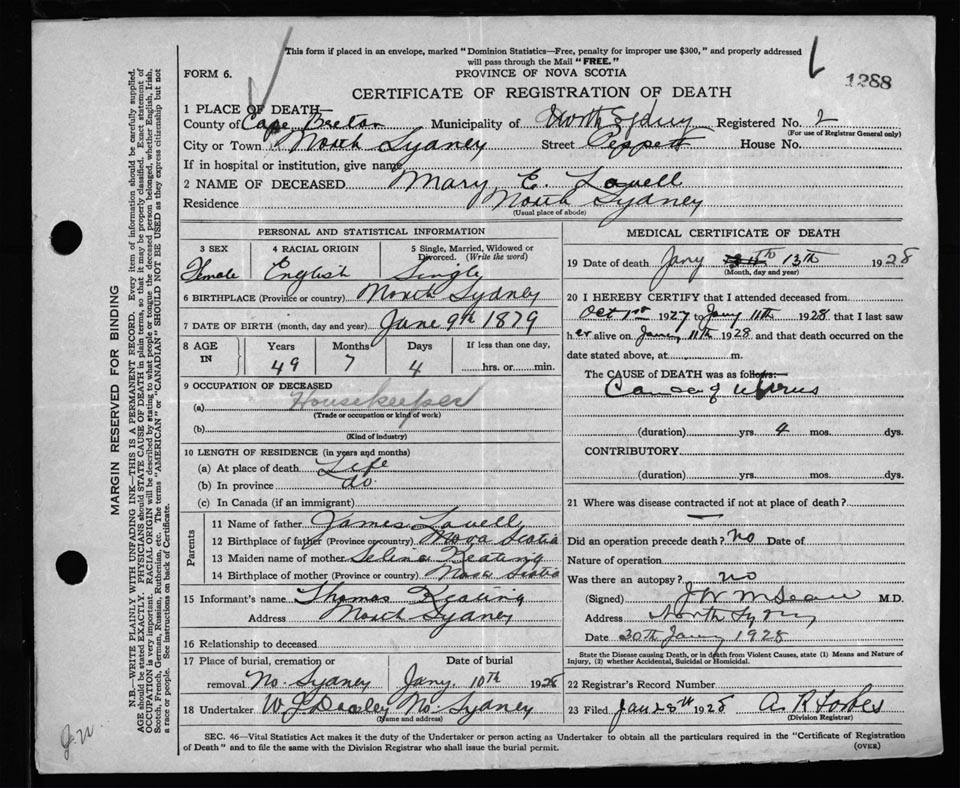 This form if placed in an envelope, marked "Dominion Statistics—Free, penalty for improper use $300," and properly addressed
will pass through the Mail "FREE."
FORM 6.
PROVINCE OF NOVA SCOTIA
1288
CERTIFICATE OF REGISTRATION OF DEATH
1 PLACE OF DEATH—
County of Cape Breton Municipality of North Sydney Registered No. 2
(For use of Registrar General only)
City or Town North Sydney Street Peppett House No.
If in hospital or institution, give name
2 NAME OF DECEASED Mary E. Lovell
Residence North Sydney
(Usual place of abode)
PERSONAL AND STATISTICAL INFORMATION
3 SEX 4 RACIAL ORIGIN 5 Single, Married, Widowed or Divorced. (Write the word)
Female English Single
6 BIRTHPLACE (Province or country) North Sydney
7 DATE OF BIRTH (month, day and year) June 9th 1879
8 AGE IN Years Months Days If less than one day,
49 7 4 hrs. or min.
9 OCCUPATION OF DECEASED
(a) Housekeeper
(Trade or occupation or kind of work)
(b)
(Kind of industry)
10 LENGTH OF RESIDENCE (in years and months)
(a) At place of death Life
(b) In province do.
(c) In Canada (if an immigrant)
Parents
11 Name of father James Lovell
12 Birthplace of father (Province or country) Nova Scotia
13 Maiden name of mother Selina Keating
14 Birthplace of mother (Province or country) Nova Scotia
15 Informant's name Thomas Keating
Address North Sydney
16 Relationship to deceased
17 Place of burial, cremation or removal Date of burial
No. Sydney Jany. 10th 1928
18 Undertaker W J Dooley No. Sydney
(Name and address)
MEDICAL CERTIFICATE OF DEATH
19 Date of death Jany 13th 1928
(Month, day and year)
20 I HEREBY CERTIFY that I attended deceased from
Oct 1st 1927 to Jany 11th 1928 that I last saw
her alive on Jany 11th 1928 and that death occurred on the
date stated above, at m.
The CAUSE of DEATH was as follows:—
Cancer of uterus
(duration) yrs. 4 mos. dys.
CONTRIBUTORY
(duration) yrs. mos. dys.
21 Where was disease contracted if not at place of death?
Did an operation precede death? no Date of
Nature of operation
Was there an autopsy? no
(Signed) J W McLean M.D.
Address North Sydney
Date 30th Jany 1928
State the Disease causing Death, or in death from Violent Causes, state (1) Means and Nature of
Injury, (2) whether Accidental, Suicidal or Homicidal.
22 Registrar's Record Number
23 Filed Jan 28th 1928 A. R Forbes
(Division Registrar)
SEC. 46—Vital Statistics Act makes it the duty of the Undertaker or person acting as Undertaker to obtain all the particulars required in the "Certificate of Registration
of Death" and to file the same with the Division Registrar who shall issue the burial permit.
(OVER)
MARGIN RESERVED FOR BINDING
N.B.—WRITE PLAINLY WITH UNFADING INK—THIS IS A PERMANENT RECORD. Every item of information should be carefully supplied.
AGE should be stated EXACTLY. PHYSICIANS should STATE CAUSE OF DEATH in plain terms, so that it may be properly classified. Exact statement of
OCCUPATION is very important. RACIAL ORIGIN will be described by stating to what people or tongue the deceased person belonged, whether English, Irish,
Scotch, French, German, Russian, Ruthenian, etc. The terms "AMERICAN" or "CANADIAN" SHOULD NOT BE USED as they express citizenship but not
a race or people. See instructions on back of Certificate.